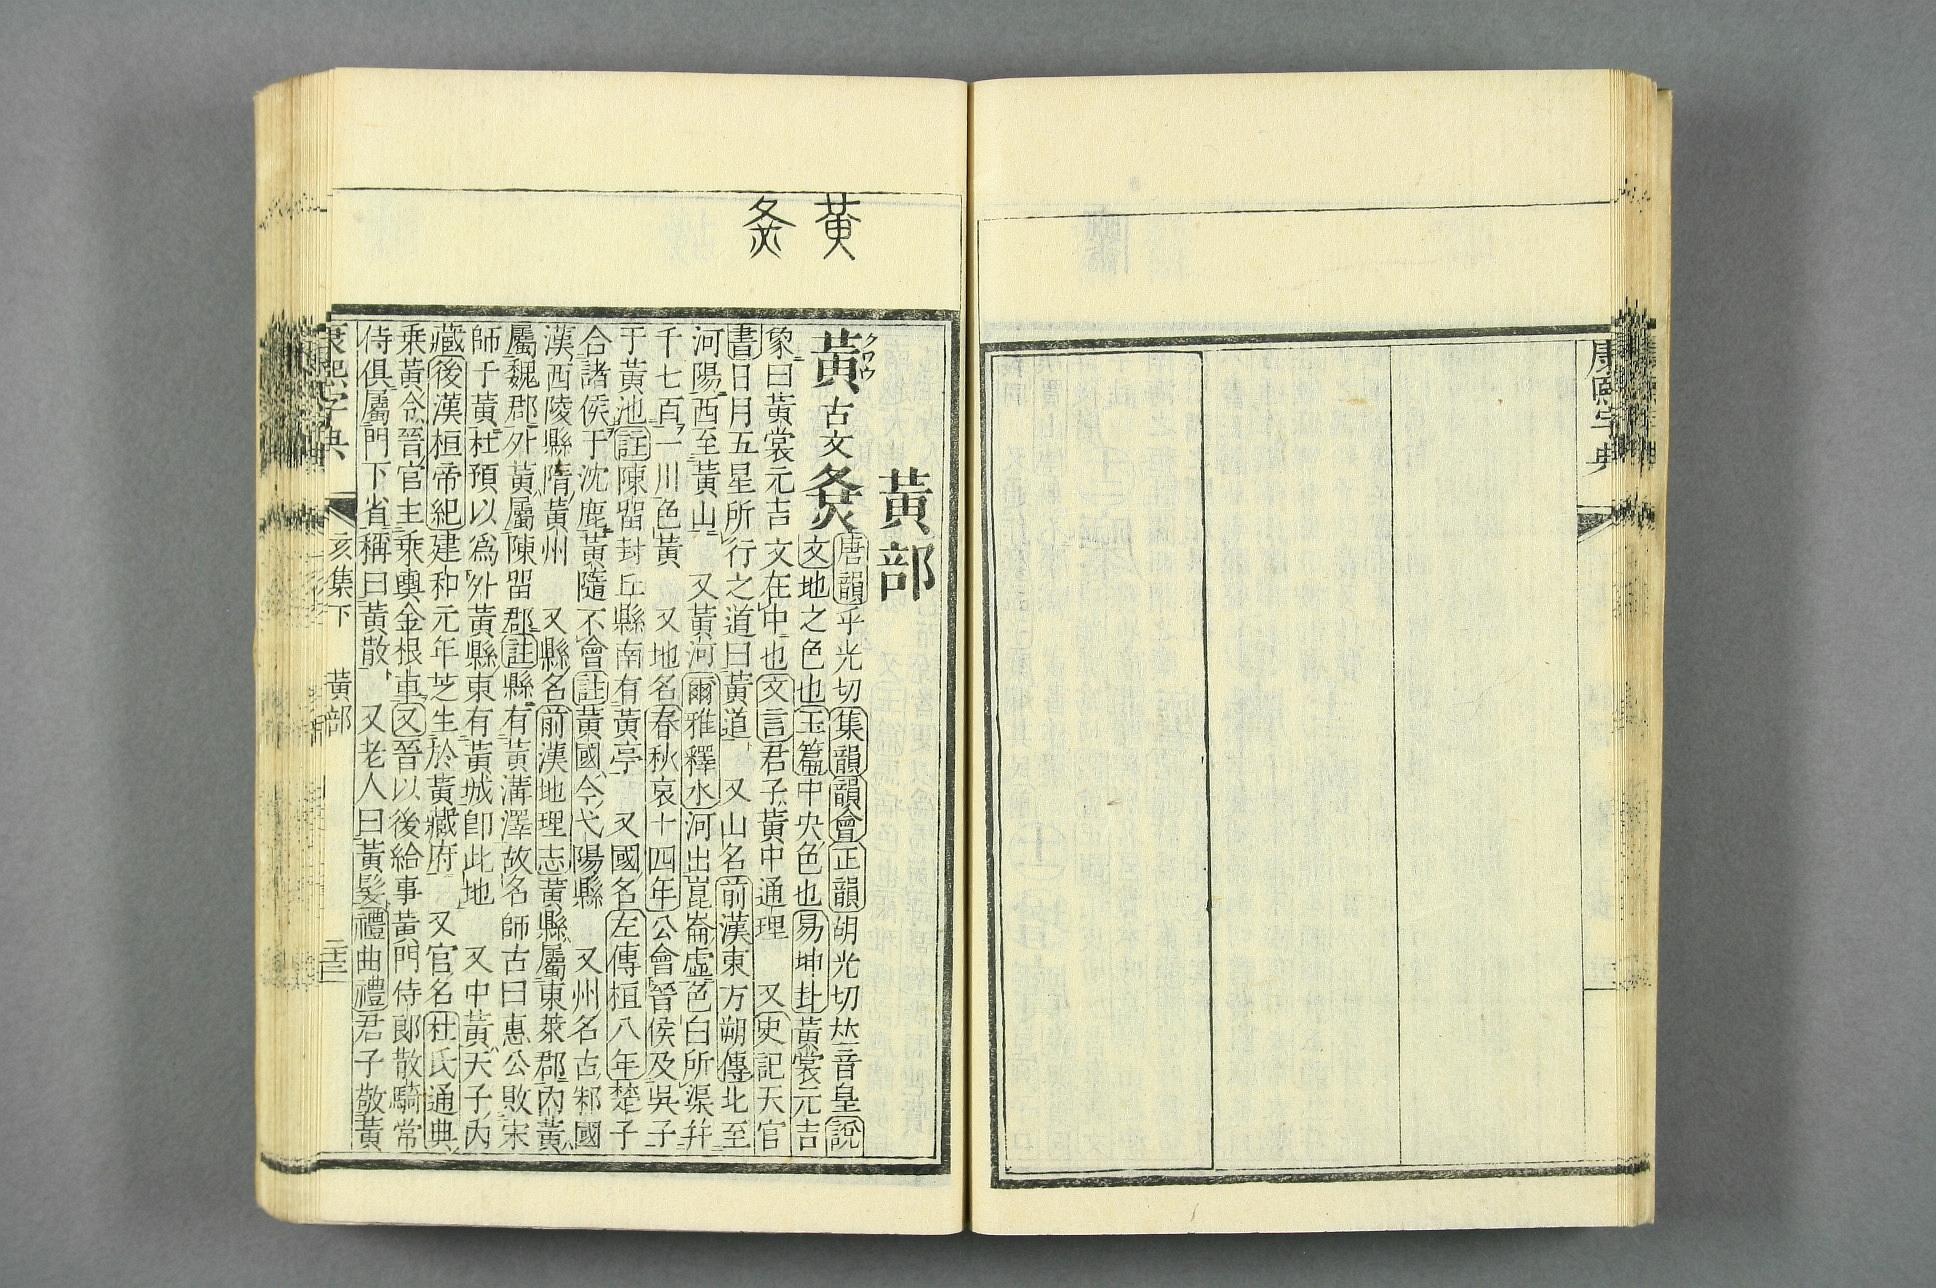 康熙字典
黃
𡕛
黃部
クワウ
黃古文𡕛唐韻乎光切集韻韻會正韻胡光切𠀤音皇說
文地之色也玉篇中央色也易坤卦黃裳元吉
象曰黃裳元吉文在中也文言君子黃中通理 又史記天官
書日月五星所行之道曰黃道 又山名前漢東方朔傳北至
河陽西至黃山 又黃河爾雅釋水河出崑崙虛色白所渠幷
千七百一川色黃 又地名春秋哀十四年公會晉侯及吳子
于黃池註陳留封丘縣南有黃亭 又國名左傳桓八年楚子
合諸侯于沈鹿黃隨不會註黃國今弋陽縣 又州名古邾國
漢西陵縣隋黃州 又縣名前漢地理志黃縣屬東萊郡內黃
屬魏郡外黃屬陳留郡註縣有黃溝澤故名師古曰惠公敗宋
師于黃杜預以爲外黃縣東有黃城卽此地 又中黃天子內
藏後漢桓帝紀建和元年芝生於黃藏府 又官名杜氏通典
乗黃令晉官主乗輿金根車又晉以後給事黃門侍郞散騎常
侍俱屬門下省稱曰黃散 又老人曰黃髮禮曲禮君子敬黃
康熙字典 亥集下 黃部